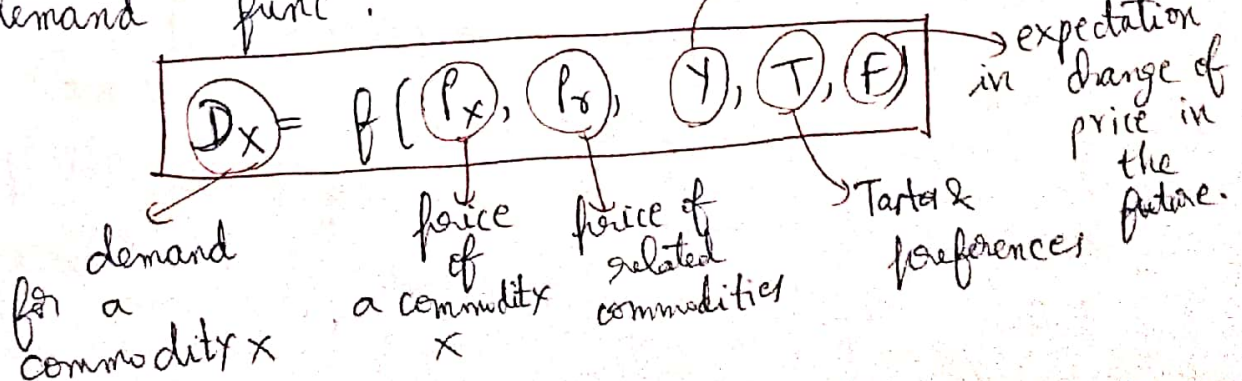 demand func.
Dx = f(Px, Pr, Y, T, E)
expectation
in change of
price in
the
future.
demand
for a
commodity x
price
of
a commodity
x
price of
related
commodities
Tastes &
preferences